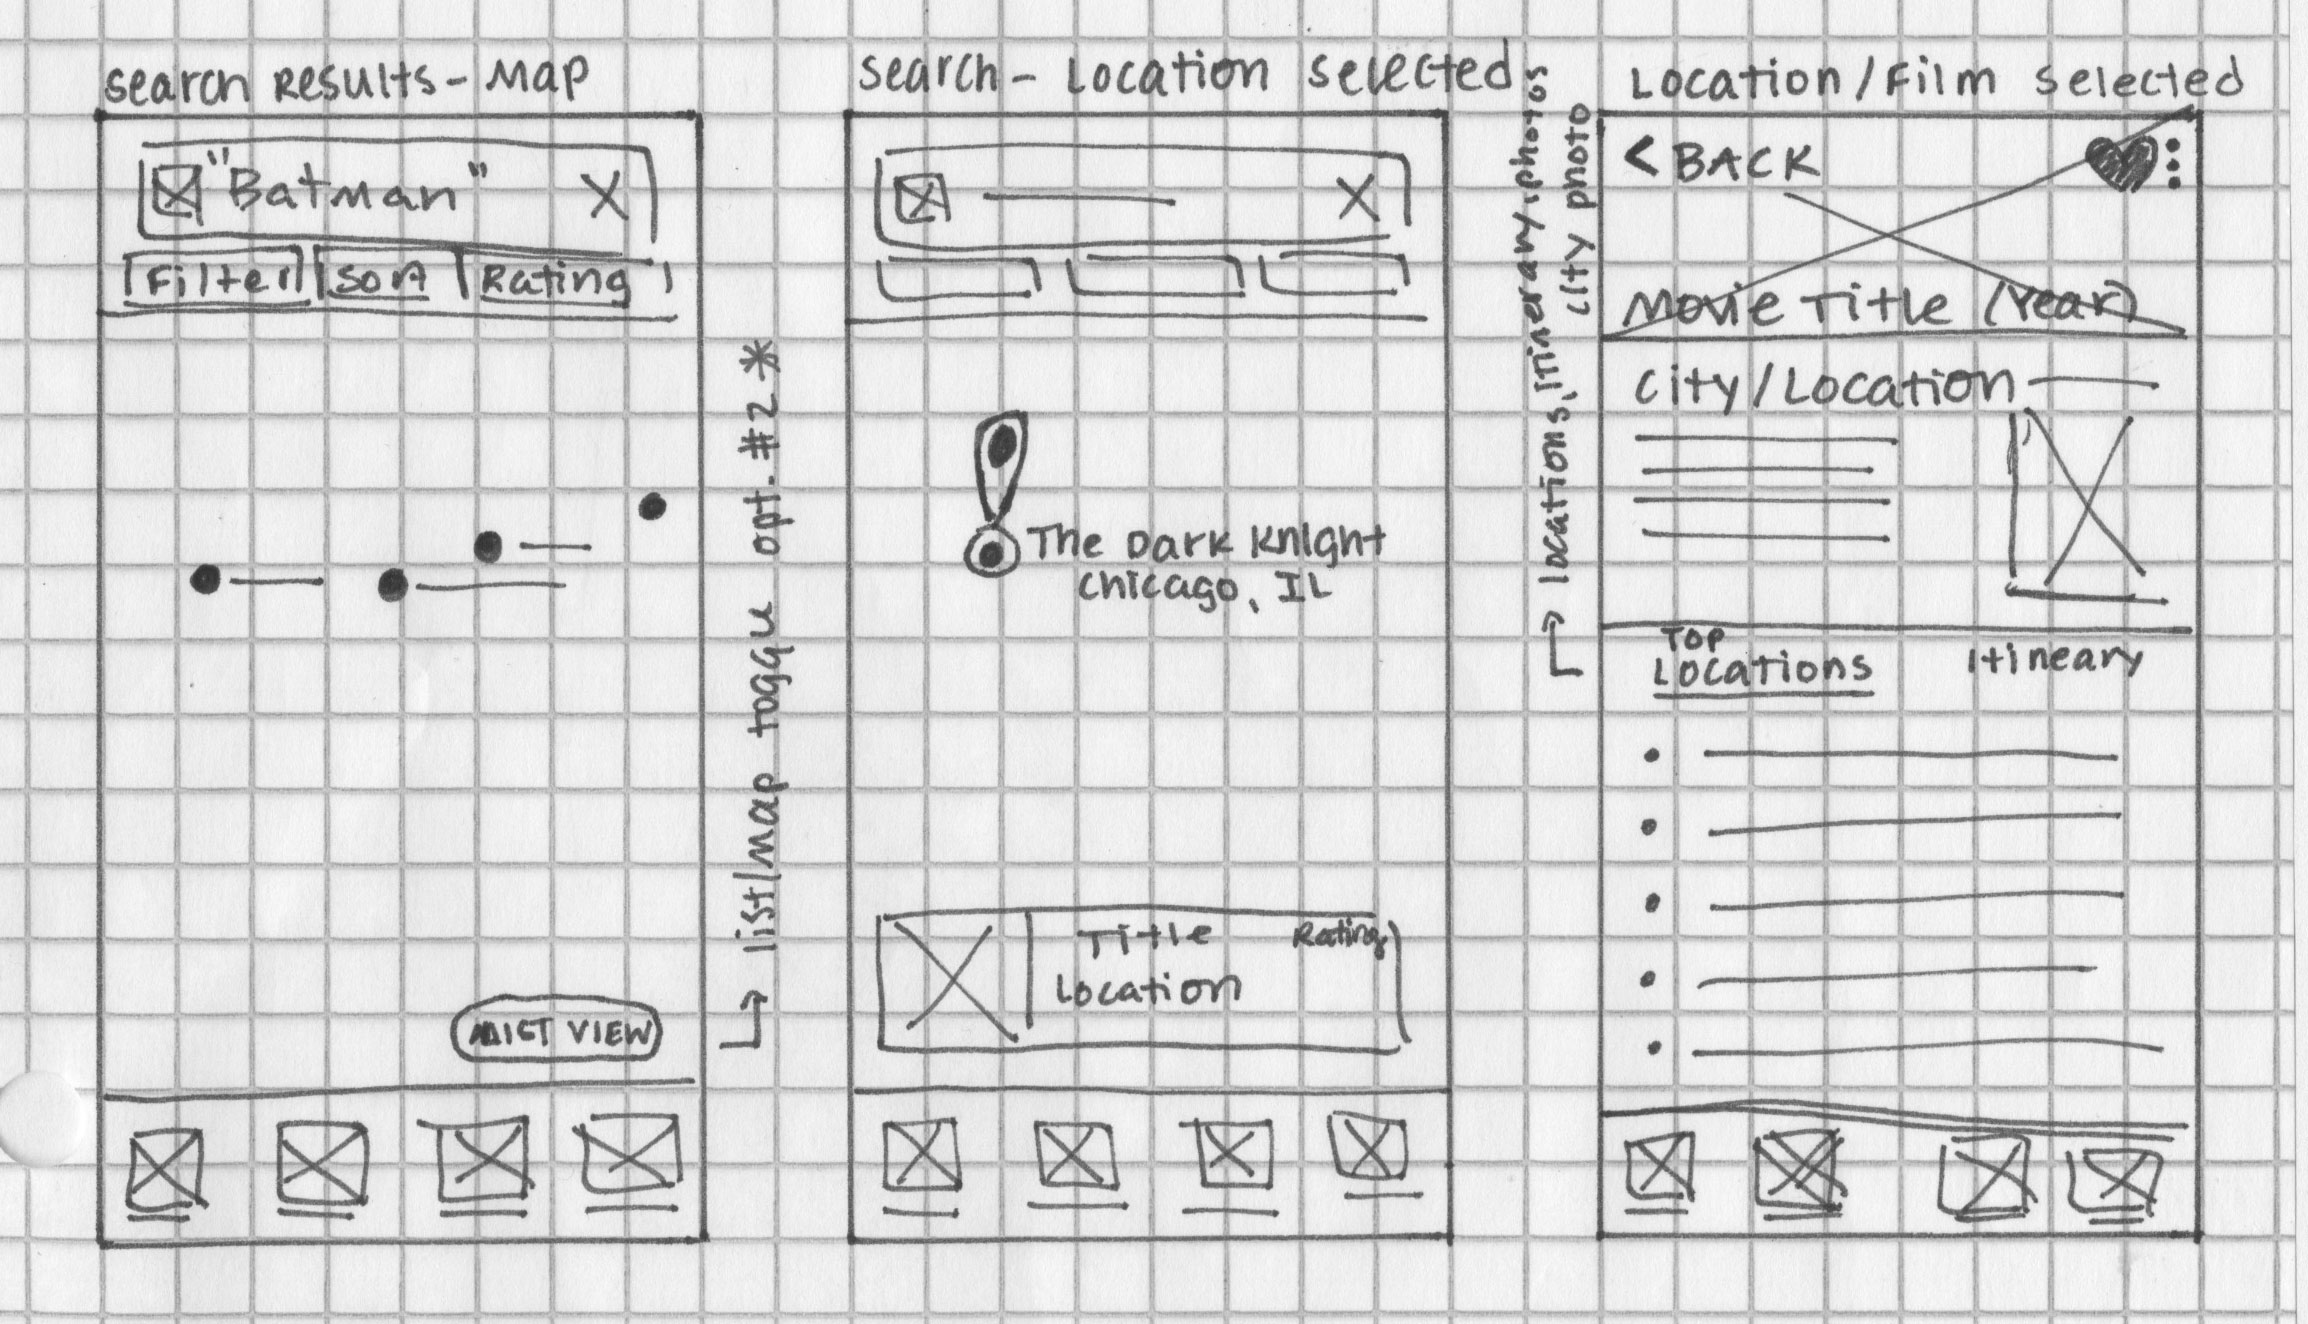 Search Results - Map
"Batman" X
Filter Sort Rating
LIST VIEW
→ list/map toggle opt. #2 *
Search - Location Selected
X
The Dark Knight
Chicago, IL
Title Rating
Location
→ locations, itinerary, photos
city photo
Location/Film Selected
< BACK
Movie Title (Year)
City/Location
Top
Locations Itineary